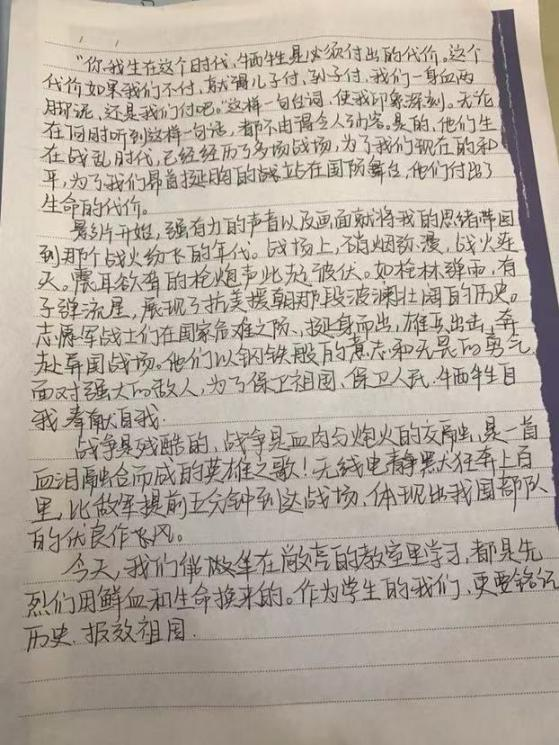 “你我生在这个时代，牺牲是必须付出的代价。这个
代价如果我们不付，就得儿子付，孙子付，我们一身血两
脚泥，还是我们付吧。”这样一句台词，使我印象深刻。无论
在何时听到这样一句话，都不由得令人动容。是的，他们生
在战乱时代，已经经历了多场战场，为了我们现在的和
平，为了我们昂首挺胸的战立在国际舞台，他们付出了
生命的代价。
影片开始，强有力的声音以及画面就将我的思绪带回
到那个战火纷飞的年代。战场上，硝烟弥漫，战火连
天。震耳欲聋的枪炮声此起彼伏。如枪林弹雨，有
子弹流星，展现了抗美援朝那段波澜壮阔的历史。
志愿军战士们在国家危难之际、挺身而出，雄兵出击，奔
赴异国战场。他们以钢铁般的意志和无畏的勇气，
面对强大的敌人，为了保卫祖国、保卫人民，牺牲自
我，奉献自我.
战争是残酷的，战争是血肉与炮火的交融，是一首
血泪融合而成的英雄之歌！无线电静默狂奔上百
里，比敌军提前五分钟到达战场，体现出我国部队
的优良作风。
今天，我们能够坐在敞亮的教室里学习，都是先
烈们用鲜血和生命换来的。作为学生的我们，更要铭记
历史，报效祖国.